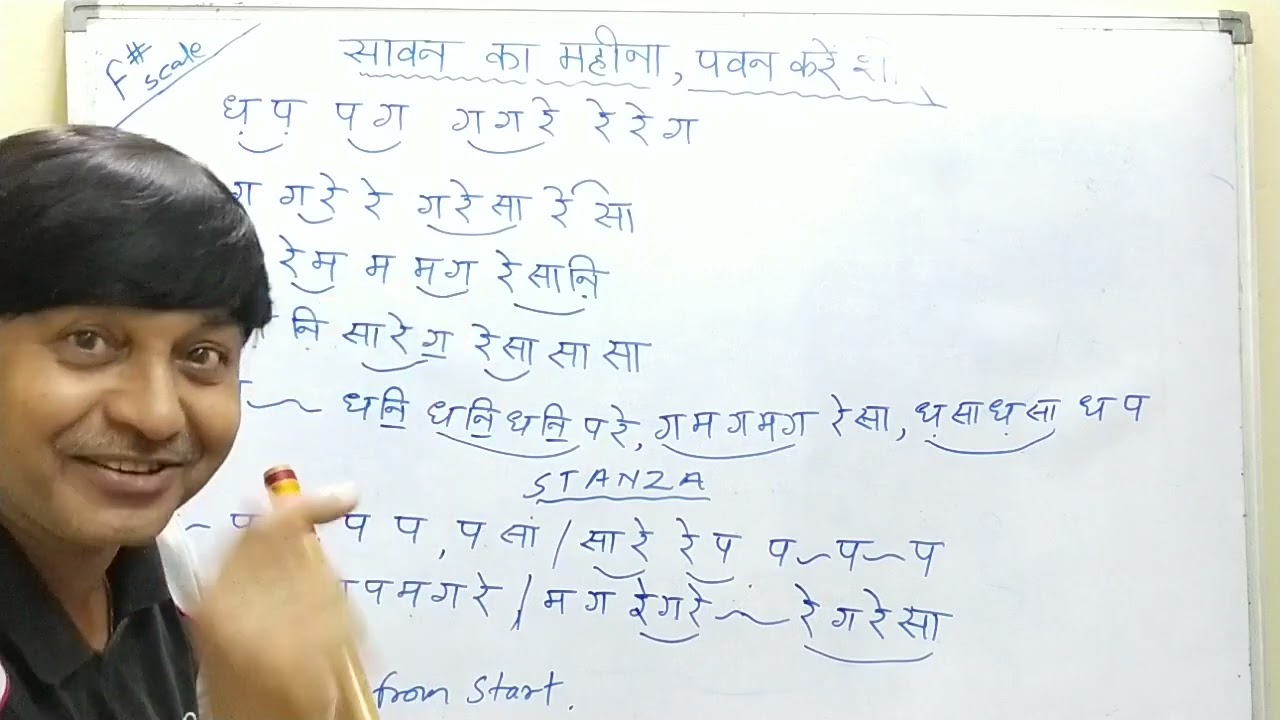 F# scale
सावन का महीना, पवन करे
ध़ प़ प ग ग ग रे रे रे ग
ग ग रे रे ग रे सा रे सा
रे म म म ग रे सा नि़
नि़ सा रे ग॒ रे सा सा सा
ध नि॒ ध नि॒ ध नि॒ प रे, ग म ग म ग रे सा, ध़ सा ध़ सा ध प
STANZA
प प, प सां / सा रे रे प प ~ प ~ प
प म ग रे / म ग रे ग रे ~ रे ग रे सा
from start.